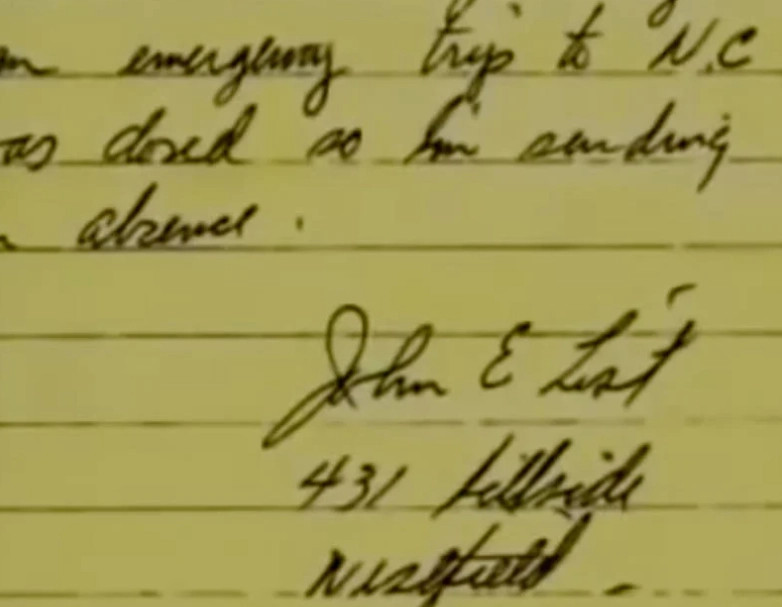 emergency trip to N.C
as closed so I'm sending
absence.
John E List
431 Hillside
Westfield